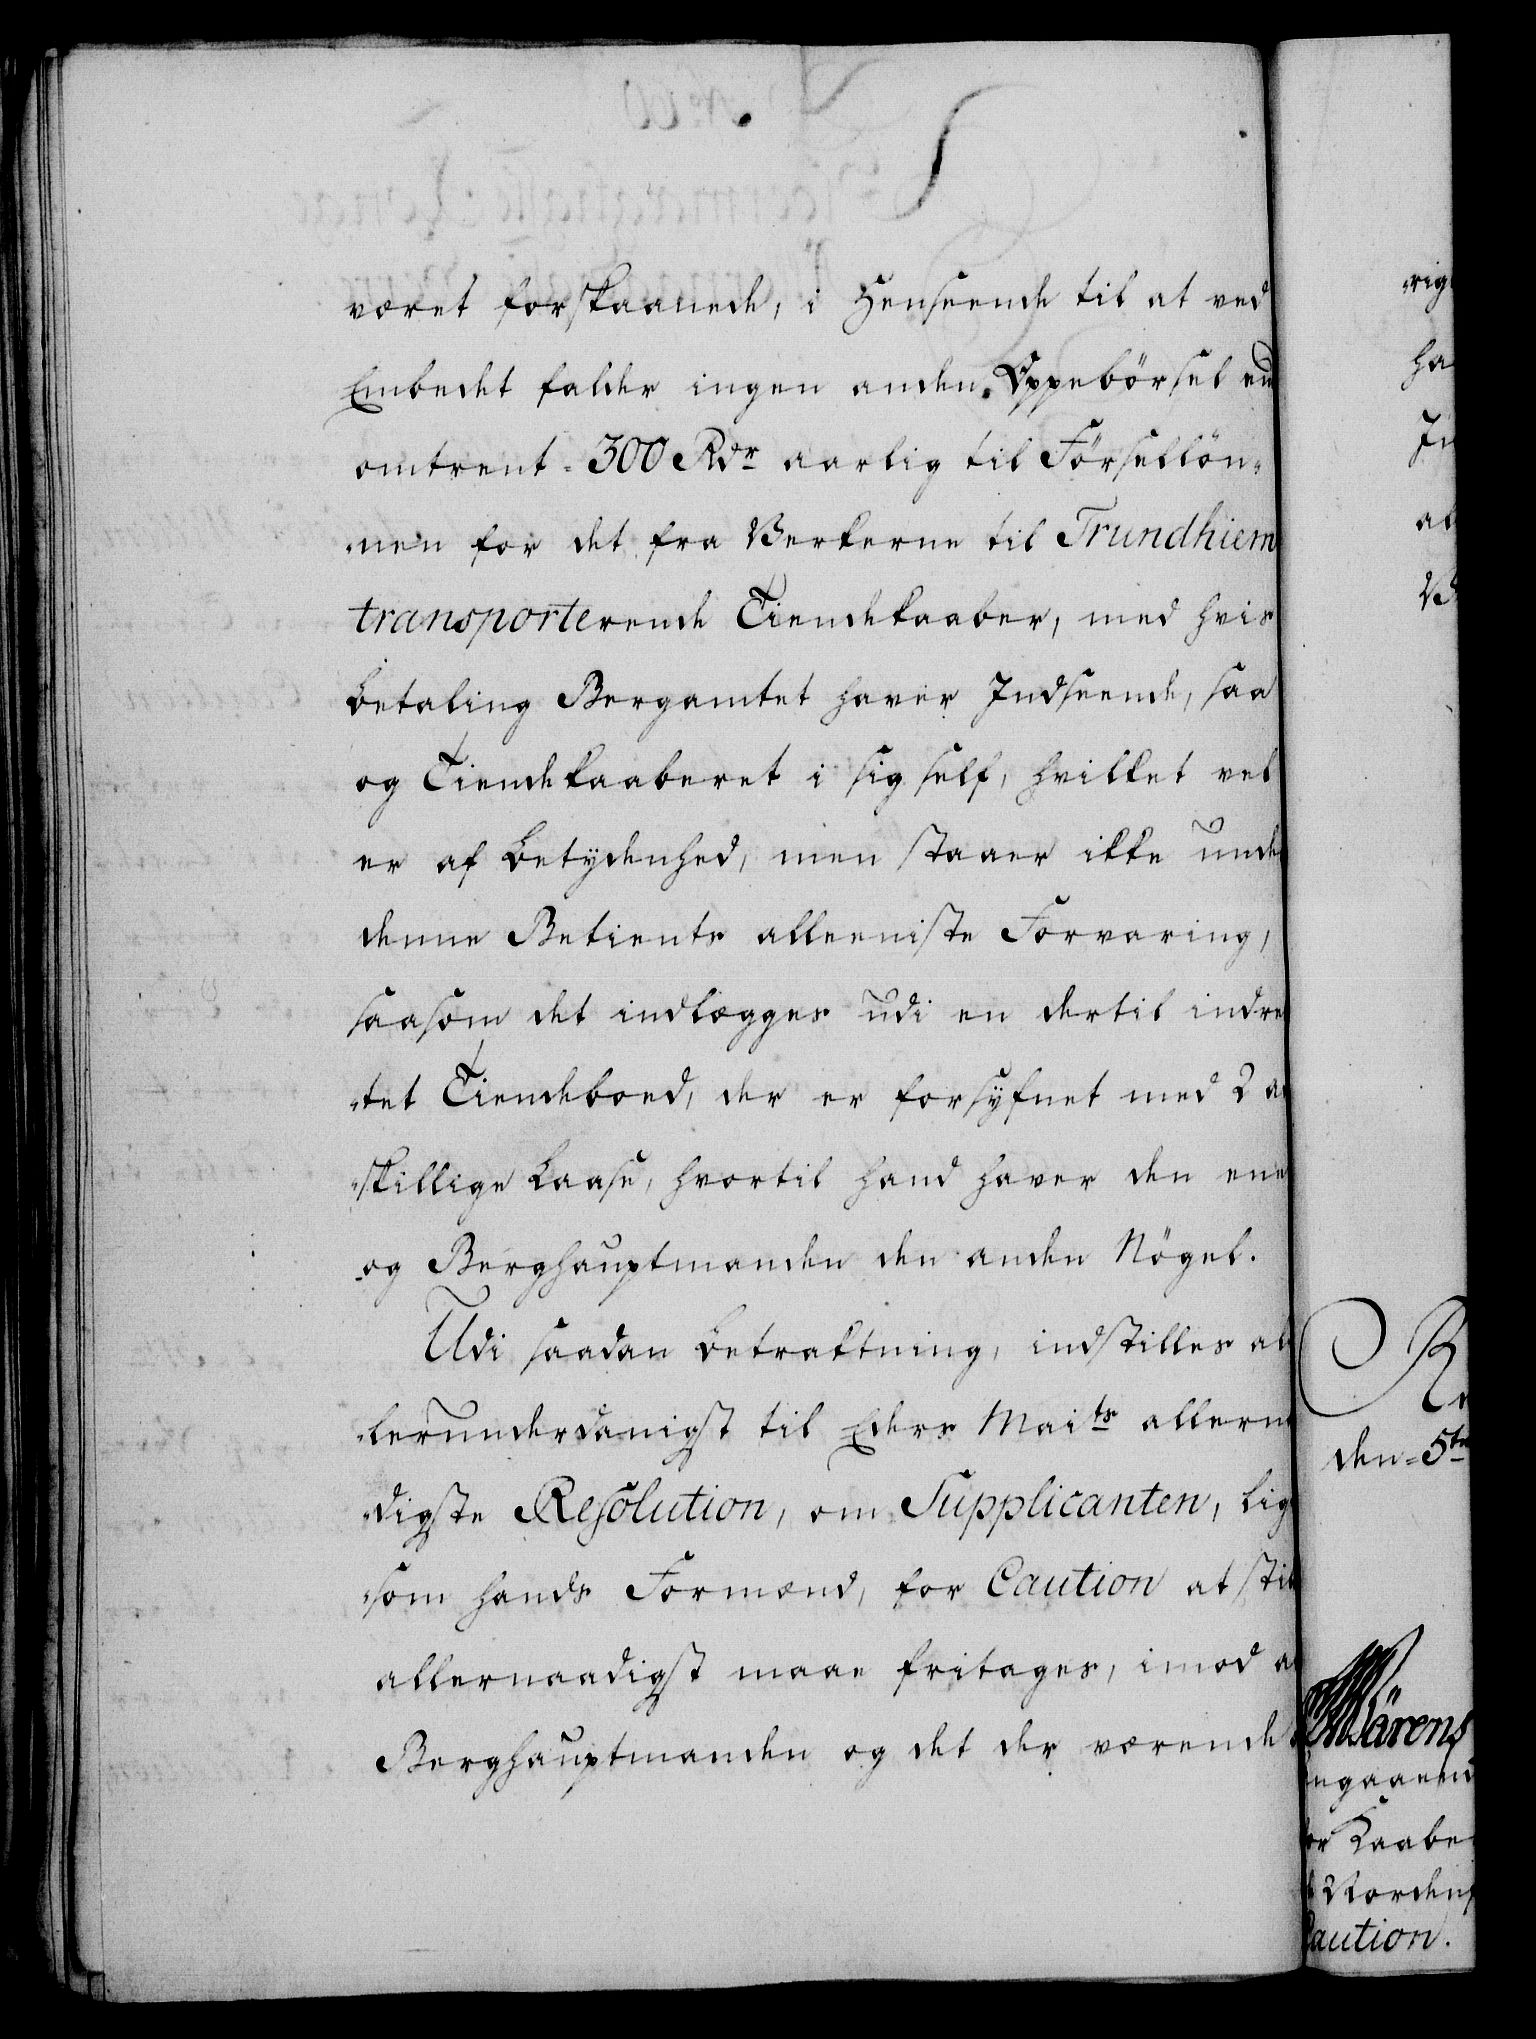 været forskaanede, i Henseende til at ved
Embedet falder ingen anden Oppebørsel en
omtrent 300 Rdr aarlig til Førsellön-
nen for det fra Verkerne til Trundhiem
transporterende Tiendekaaber, med hvis
betaling Bergamtet haver Indseende, saa
og Tiendekaaberet i sig self, hvilket vel
er af betydenhed, men staaer ikke unde
denne Betients alleeniste Forvaring,
saasom det indlægges udi en dertil indre
tet Tiendeboed, der er forsyfnet med 2 a
skillige Laase, hvortil hand haver den ene
og Berghauptmanden den anden Nögel.
Udi saadan betraktning, indstilles al
lerunderdanigst til Eders Maits allerna
digste Resolution, om Supplicanten, lig
som hands Formænd, for Caution at stil
allernaadigst maae fritages, imod a
Berghauptmanden og det der værende
rig
ha
In
al
den 5te
Märens
ngaaend
or Kaabe
Norden
Caution.